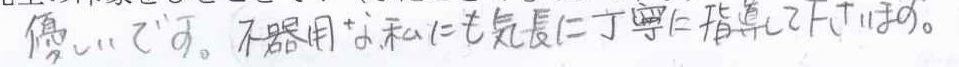 優しいです。不器用な私にも気長に丁寧に指導して下さいます。